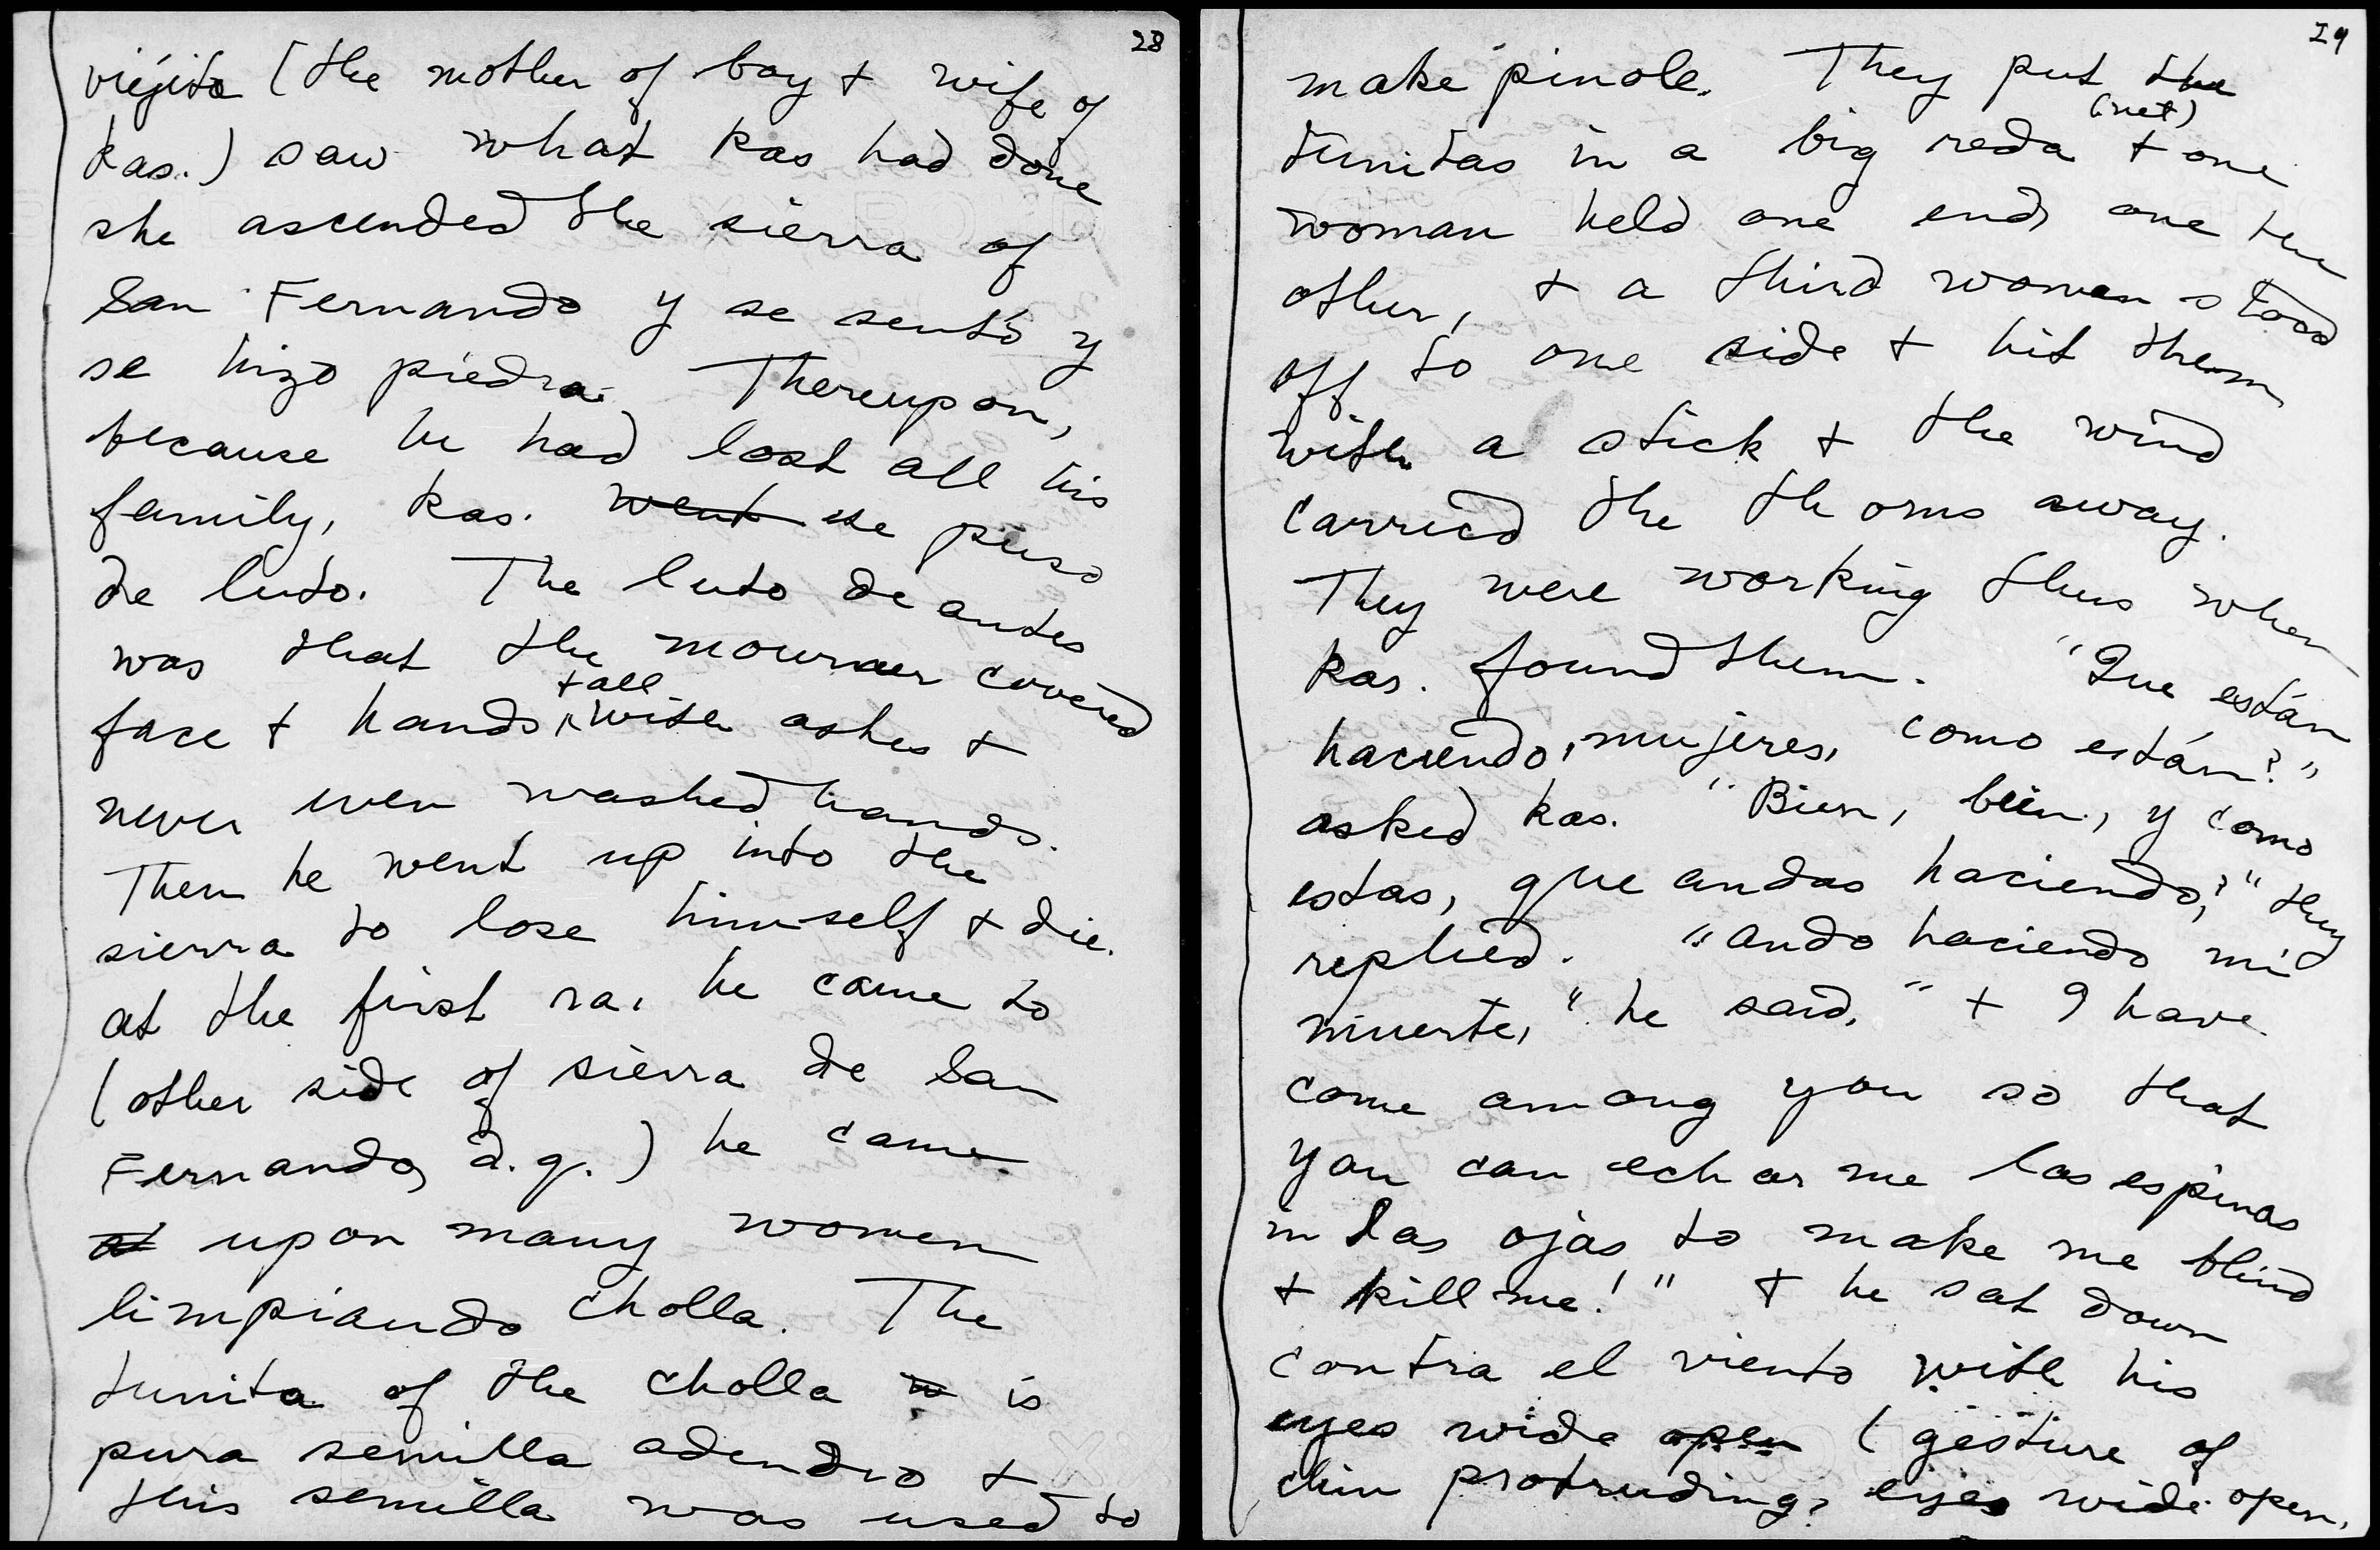 28
viejita (the mother of boy + wife of
kas.) saw what kas had done
she ascended the sierra of
San Fernando y se sentó y
se hizo piedra. Thereupon,
because he had lost all his
family, kas. went se puso
de luto. The luto de antes
was that the mourner covered
+ all
face + hands, with ashes +
never even washed hands.
Then he went up into the
sierra to lose himself + die.
at the first ra. he came to
(other side of sierra de San
Fernando, d.q.) he came
at upon many women
limpiando cholla. The
tunita of the cholla is
pura semilla adendro +
this semilla was used to
29
make pinole. They put the
(net)
tunitas in a big reda + one
woman held one end, one the
other, + a third woman stood
off to one side + hit them
with a stick + the wind
carried the thorns away.
They were working thus when
kas. found them. "Que están
haciendo, mujeres, como están?"
asked kas. "Bien, bien, y como
estas, que andas haciendo?" they
replied. "ando haciendo mi
muerte," he said, "+ I have
come among you so that
you can echarme las espinas
in las ojas to make me blind
+ kill me!" + he sat down
contra el viento with his
eyes wide open (gesture of
chin protruding, eyes wide open,